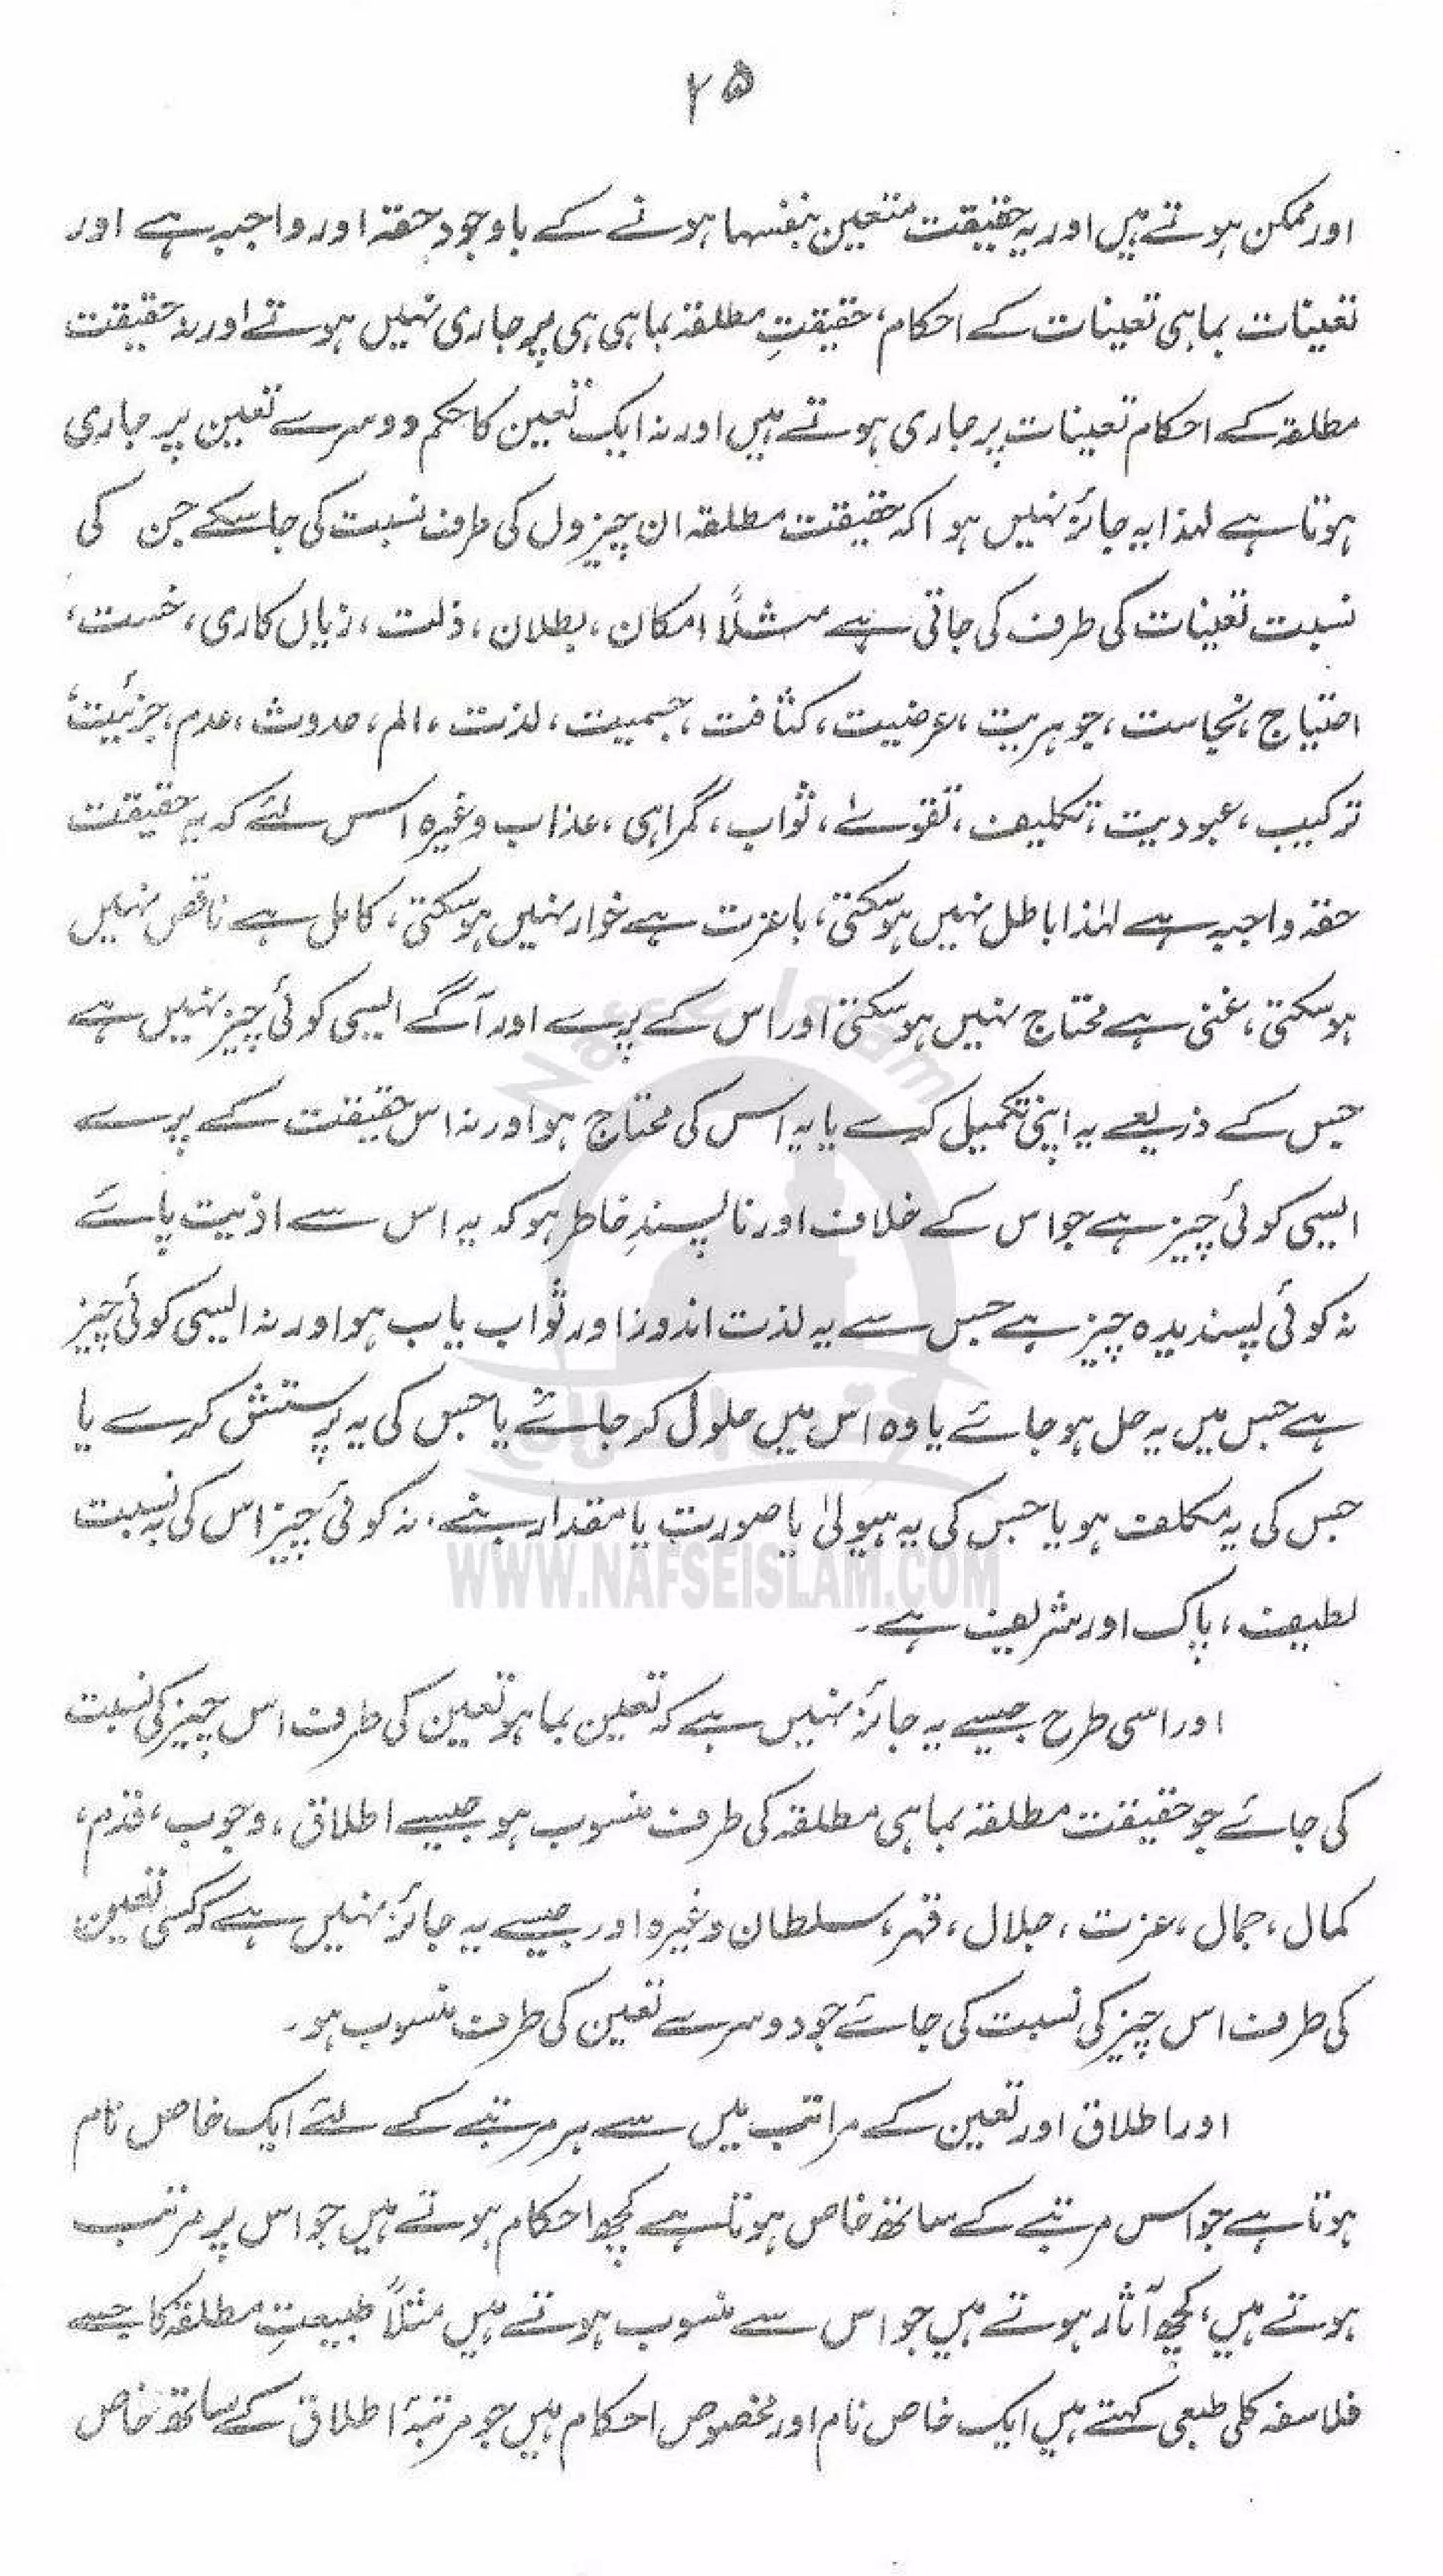 ۲۵
اور ممکن ہوتے ہیں اور یہ حقیقت متعین بنفسہا ہونے کے باوجود حقہ اور واجبہ ہے اور
تعینات بماہی تعینات کے احکام، حقیقتِ مطلقہ بماہی ہی پر جاری نہیں ہوتے اور نہ حقیقت
مطلقہ کے احکام تعینات پر جاری ہوتے ہیں اور نہ ایک تعین کا حکم دوسرے تعین پر جاری
ہوتا ہے لہذا یہ جائز نہیں ہوا کہ حقیقت مطلقہ ان چیزوں کی طرف نسبت کی جاسکے جن کی
نسبت تعینات کی طرف کی جاتی ہے مثلاً امکان، بطلان، ذلت، زیاں کاری، خست،
احتیاج، نجاست، جوہریت، عرضیت، کثافت، جسمیت، لذت، الم، حدوث، عدم، جزئیت،
ترکیب، عبودیت، تکلیف، تقوےٰ، ثواب، گمراہی، عذاب وغیرہ اس لئے کہ یہ حقیقت
حقہ واجبہ ہے لہٰذا باطل نہیں ہوسکتی، باعزت ہے خوار نہیں ہوسکتی، کامل ہے ناقص نہیں
ہوسکتی، غنی ہے محتاج نہیں ہوسکتی اور اس کے پرے اور آگے ایسی کوئی چیز نہیں ہے
جس کے ذریعے یہ اپنی تکمیل کرے یا یہ اس کی محتاج ہو اور نہ اس حقیقت کے پرے
ایسی کوئی چیز ہے جو اس کے خلاف اور ناپسندِ خاطر ہو کہ یہ اس سے اذیت پائے
نہ کوئی پسندیدہ چیز ہے جس سے یہ لذت اندوز اور ثواب یاب ہو اور نہ ایسی کوئی چیز
ہے جس میں یہ حل ہوجائے یا وہ اس میں حلول کر جائے یا جس کی یہ پرستش کرے یا
جس کی یہ مکلف ہو یا جس کی یہ ہیولیٰ یا صورت یا مقدار بنے، نہ کوئی چیز اس کی بہ نسبت
لطیف، پاک اور شریف ہے۔
اور اسی طرح جیسے یہ جائز نہیں ہے کہ تعین بماہو تعین کی طرف اس چیز کی نسبت
کی جائے جو حقیقت مطلقہ بماہی مطلقہ کی طرف منسوب ہو جیسے اطلاق، وجوب، قدم،
کمال، جمال، عزت، جلال، قہر، سلطان وغیرہ اور جیسے یہ جائز نہیں ہے کہ کسی تعین
کی طرف اس چیز کی نسبت کی جائے جو دوسرے تعین کی طرف منسوب ہو۔
اور اطلاق اور تعین کے مراتب میں سے ہر مرتبے کے لئے ایک خاص نام
ہوتا ہے جو اس مرتبے کے ساتھ خاص ہوتا ہے کچھ احکام ہوتے ہیں جو اس پر مرتب
ہوتے ہیں، کچھ آثار ہوتے ہیں جو اس سے منسوب ہوتے ہیں مثلاً طبیعتِ مطلقہ کا جسے
فلاسفہ کلی طبعی کہتے ہیں ایک خاص نام اور مخصوص احکام ہیں جو مرتبۂ اطلاق کے ساتھ خاص
Nafse Islam
WWW.NAFSEISLAM.COM